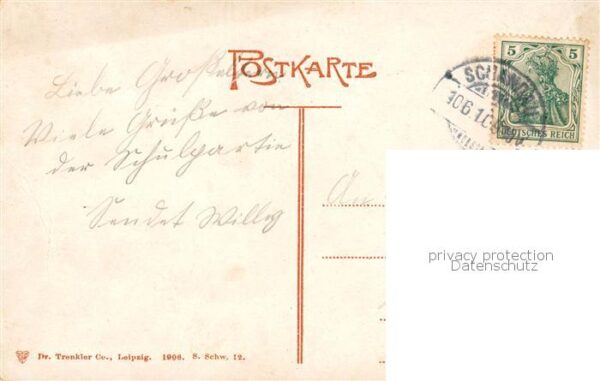 POSTKARTE
Liebe Großeltern
Viele Grüße von
der Schulpartie
Sendet Willy
An
5 5
DEUTSCHES REICH
10 6 10
privacy protection
Datenschutz
Dr. Trenkler Co., Leipzig. 1906. S. Schw. 12.